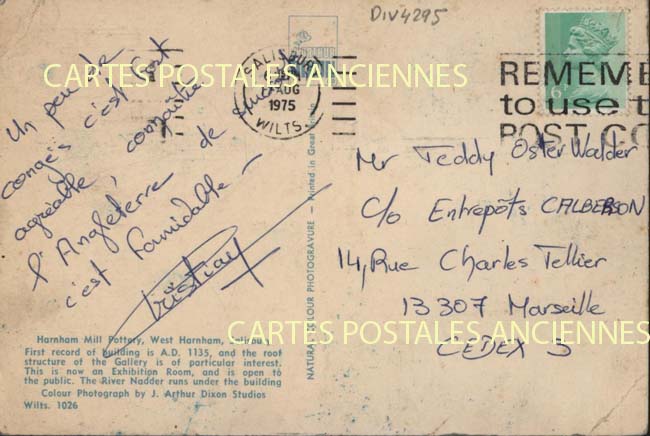 DIV4295
SALISBURY
AUG
1975
WILTS.
REMEME
to use t
POST CO
CARTES POSTALES ANCIENNES
Un peu de
congés c'est fort
agréable, compatible
l'Angleterre de
c'est formidable -
Mr Teddy OsterWalder
C/o Entrepôts CALBERSON
14, Rue Charles Tellier
13307 Marseille
CEDEX 3
NATURAL COLOUR PHOTOGRAVURE — Printed in Great
CARTES POSTALES ANCIENNES
Harnham Mill Pottery, West Harnham, Salisbury
First record of building is A.D. 1135, and the roof
structure of the Gallery is of particular interest.
This is now an Exhibition Room, and is open to
the public. The River Nadder runs under the building
Colour Photograph by J. Arthur Dixon Studios
Wilts. 1026